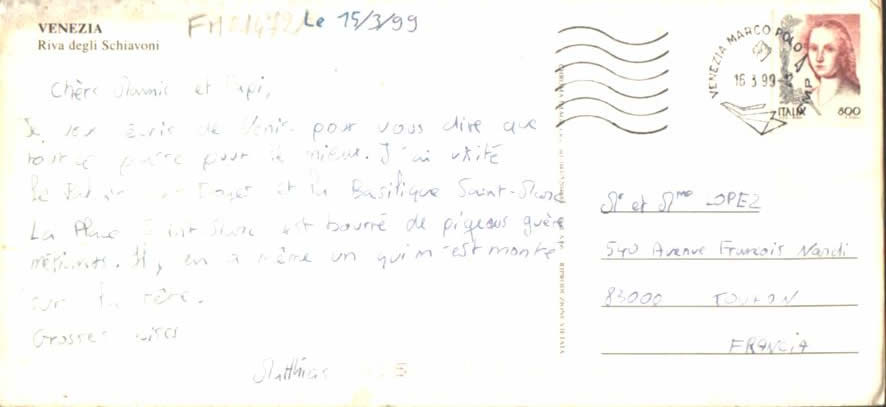 VENEZIA
Riva degli Schiavoni
FM01472
Le 15/3/99
Chers Mamie et Papi,
Je vous écris de Venise pour vous dire que
tout se passe pour le mieux. J'ai visité
le Palais des Doges et la Basilique Saint-Marc
La Place Saint-Marc est bourré de pigeons guère
méfiants. Il y en a même un qui m'est monté
sur la tête.
Grosses bises
Matthias
VENEZIA MARCO POLO
16 3 99
ITALIA 800
Mr et Mme LOPEZ
540 Avenue François Nardi
83000 TOULON
FRANCIA